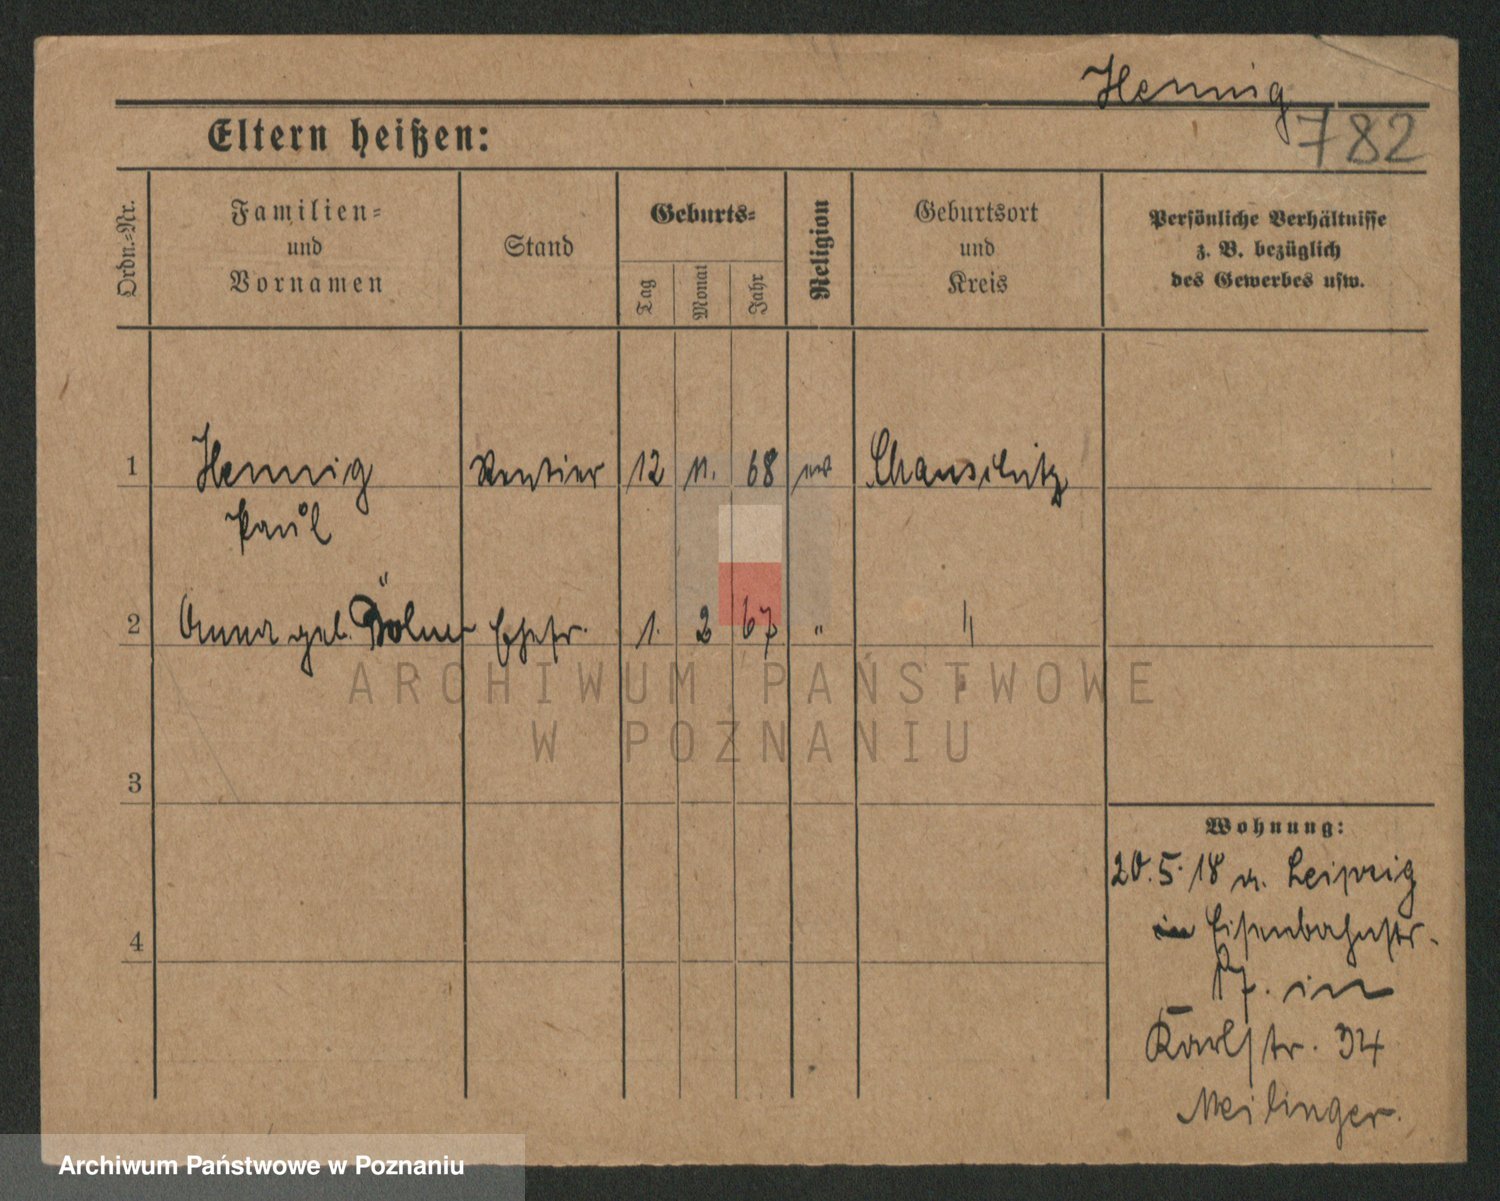 Hennig
782
Eltern heißen:
Ordn.-Nr.
Familien-
und
Vornamen
Stand
Geburts-
Tag
Monat
Jahr
Religion
Geburtsort
und
Kreis
Persönliche Verhältnisse
z. B. bezüglich
des Gewerbes usw.
1 Hennig Rentier 12 11. 68 ev
Paul
2 Anna geb. Ehefr. 1. 2 67 " "
ARCHIWUM PAŃSTWOWE
W POZNANIU
3
Wohnung:
20.5.18 n. Leipzig
4
in Eisenbahnstr.
17. in
Karlstr. 34
Meilinger.
Archiwum Państwowe w Poznaniu